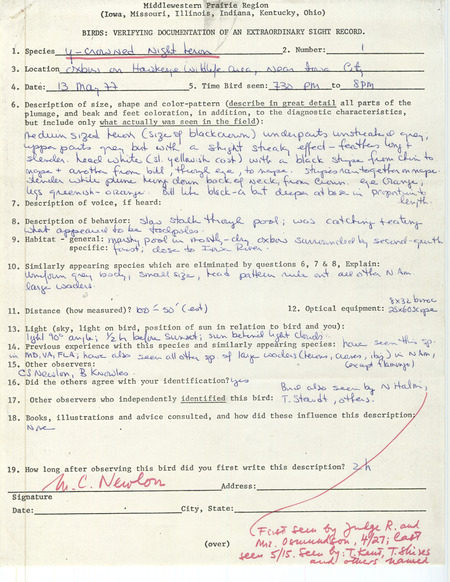 Middlewestern Prairie Region
(Iowa, Missouri, Illinois, Indiana, Kentucky, Ohio)
BIRDS: VERIFYING DOCUMENTATION OF AN EXTRAORDINARY SIGHT RECORD.
1. Species Y-crowned Night heron 2. Number: 1
3. Location Oxbow on Hawkeye Wildlife Area, near Iowa City
4. Date: 13 May 77 5. Time Bird seen: 730 PM to 8PM
6. Description of size, shape and color-pattern (describe in great detail all parts of the
plumage, and beak and feet coloration, in addition, to the diagnostic characteristics,
but include only what actually was seen in the field):
medium sized heron (size of blackcrown) underparts unstreaked grey,
upper parts grey but with a slight streaky effect - feathers long +
slender. head white (sl. yellowish cast) with a black stripe from chin to
nape + another from bill, through eye, to nape. stripes ran together on nape.
slender white plume hung down back of neck, from crown. eye orange,
legs greenish-orange. Bill like black-c but deeper at base in proportion to
length.
7. Description of voice, if heard:
8. Description of behavior: slow stalk through pool; was catching + eating
what appeared to be tadpoles.
9. Habitat - general: marshy pool in mostly-dry oxbow surrounded by second-growth
specific: forest; close to Iowa River.
10. Similarly appearing species which are eliminated by questions 6, 7 & 8, Explain:
Uniform grey body, small size, head pattern rule out all other N Am
large waders.
11. Distance (how measured)? 100 - 50' (est) 12. Optical equipment: 8x32 binoc
25x60 scope
13. Light (sky, light on bird, position of sun in relation to bird and you):
light 90° angle; 1/2 h before sunset; sun behind light clouds.
14. Previous experience with this species and similarly appearing species: have seen this sp
in MD, VA, FLA; have also seen all other sp. of large waders (herons, cranes, ibis) in N Am,
(except flamingo)
15. Other observers:
CS Newlon, B Knowles
16. Did the others agree with your identification? yes
Bird also seen by N Halmi,
17. Other observers who independently identified this bird: T. Staudt, others.
18. Books, illustrations and advice consulted, and how did these influence this description:
None
19. How long after observing this bird did you first write this description? 2h
M. C. Newlon Address:
Signature
Date: City, State:
(First seen by Judge R. and
Mrs. Osmundson, 4/27; last
(over) seen 5/15. Seen by: T. Kent, T. Shires
and others named